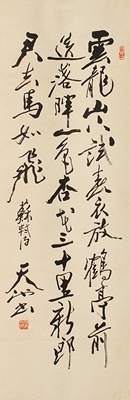 雲龍山下試春衣放鶴亭前
送落暉一色杏花三十里新郎
君去馬如飛
蘇軾詩
天